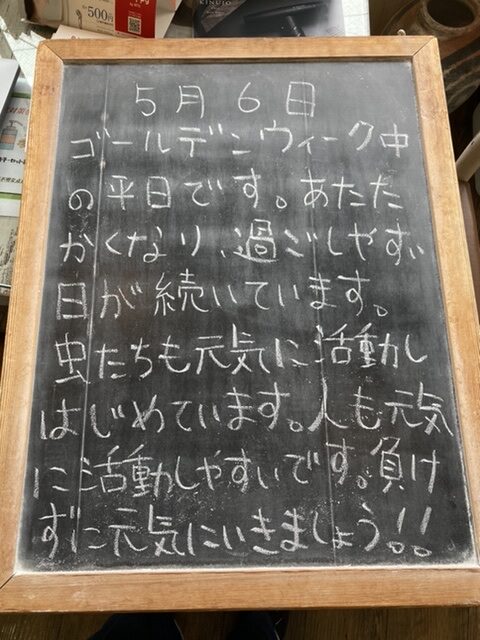 500円
KINUJO
5月6日
ゴールデンウィーク中
の平日です。あたた
かくなり、過ごしやすい
日が続いています。
虫たちも元気に活動し
はじめています。人も元気
に活動しやすいです。負け
ずに元気にいきましょう!!